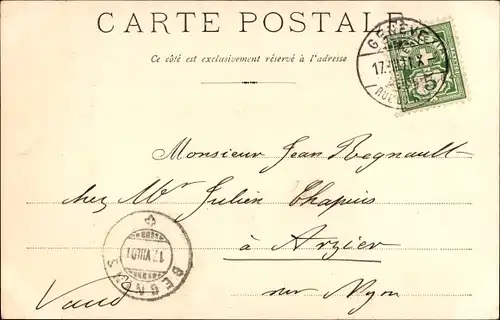 CARTE POSTALE
Ce côté est exclusivement réservé à l'adresse
GENÈVE
5
Monsieur Jean Regnault
chez Mr Julien Chapuis
à Arzier
sur Nyon
Vaud
17.VII.01
BEGNINS